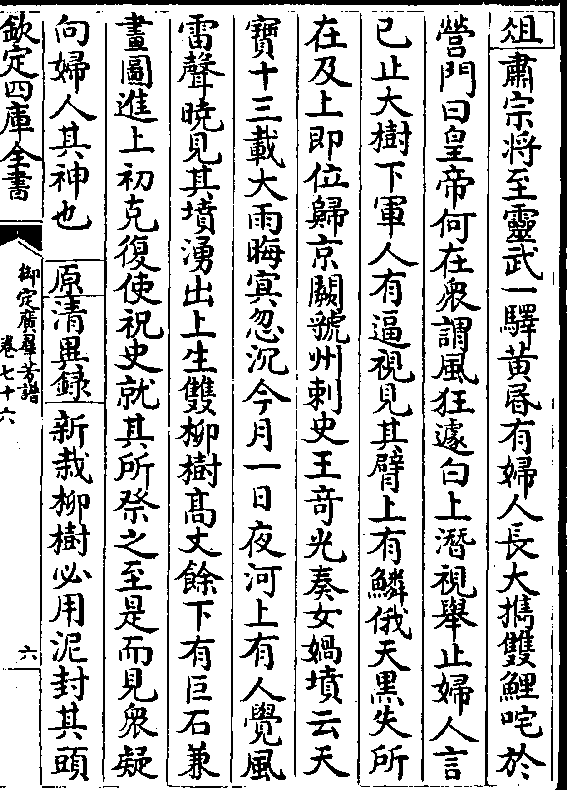 俎 肅宗將至靈武一驛黄昏有婦人長大擕雙鯉咤於
營門曰皇帝何在衆謂風狂遽白上潛視舉止婦人言
已止大樹下軍人有逼視見其臂上有鱗俄天黒失所
在及上即位歸京闕虢州刺史王竒光奏女媧墳云天
寶十三載大雨晦冥忽沉今月一日夜河上有人覺風
雷聲曉見其墳湧出上生雙栁樹髙丈餘下有巨石兼
畫圖進上初克復使祝史就其所祭之至是而見衆疑
向婦人其神也 原清異録 新栽栁樹必用泥封其頭
欽定四庫全書
御定廣羣芳譜
卷七十六
六